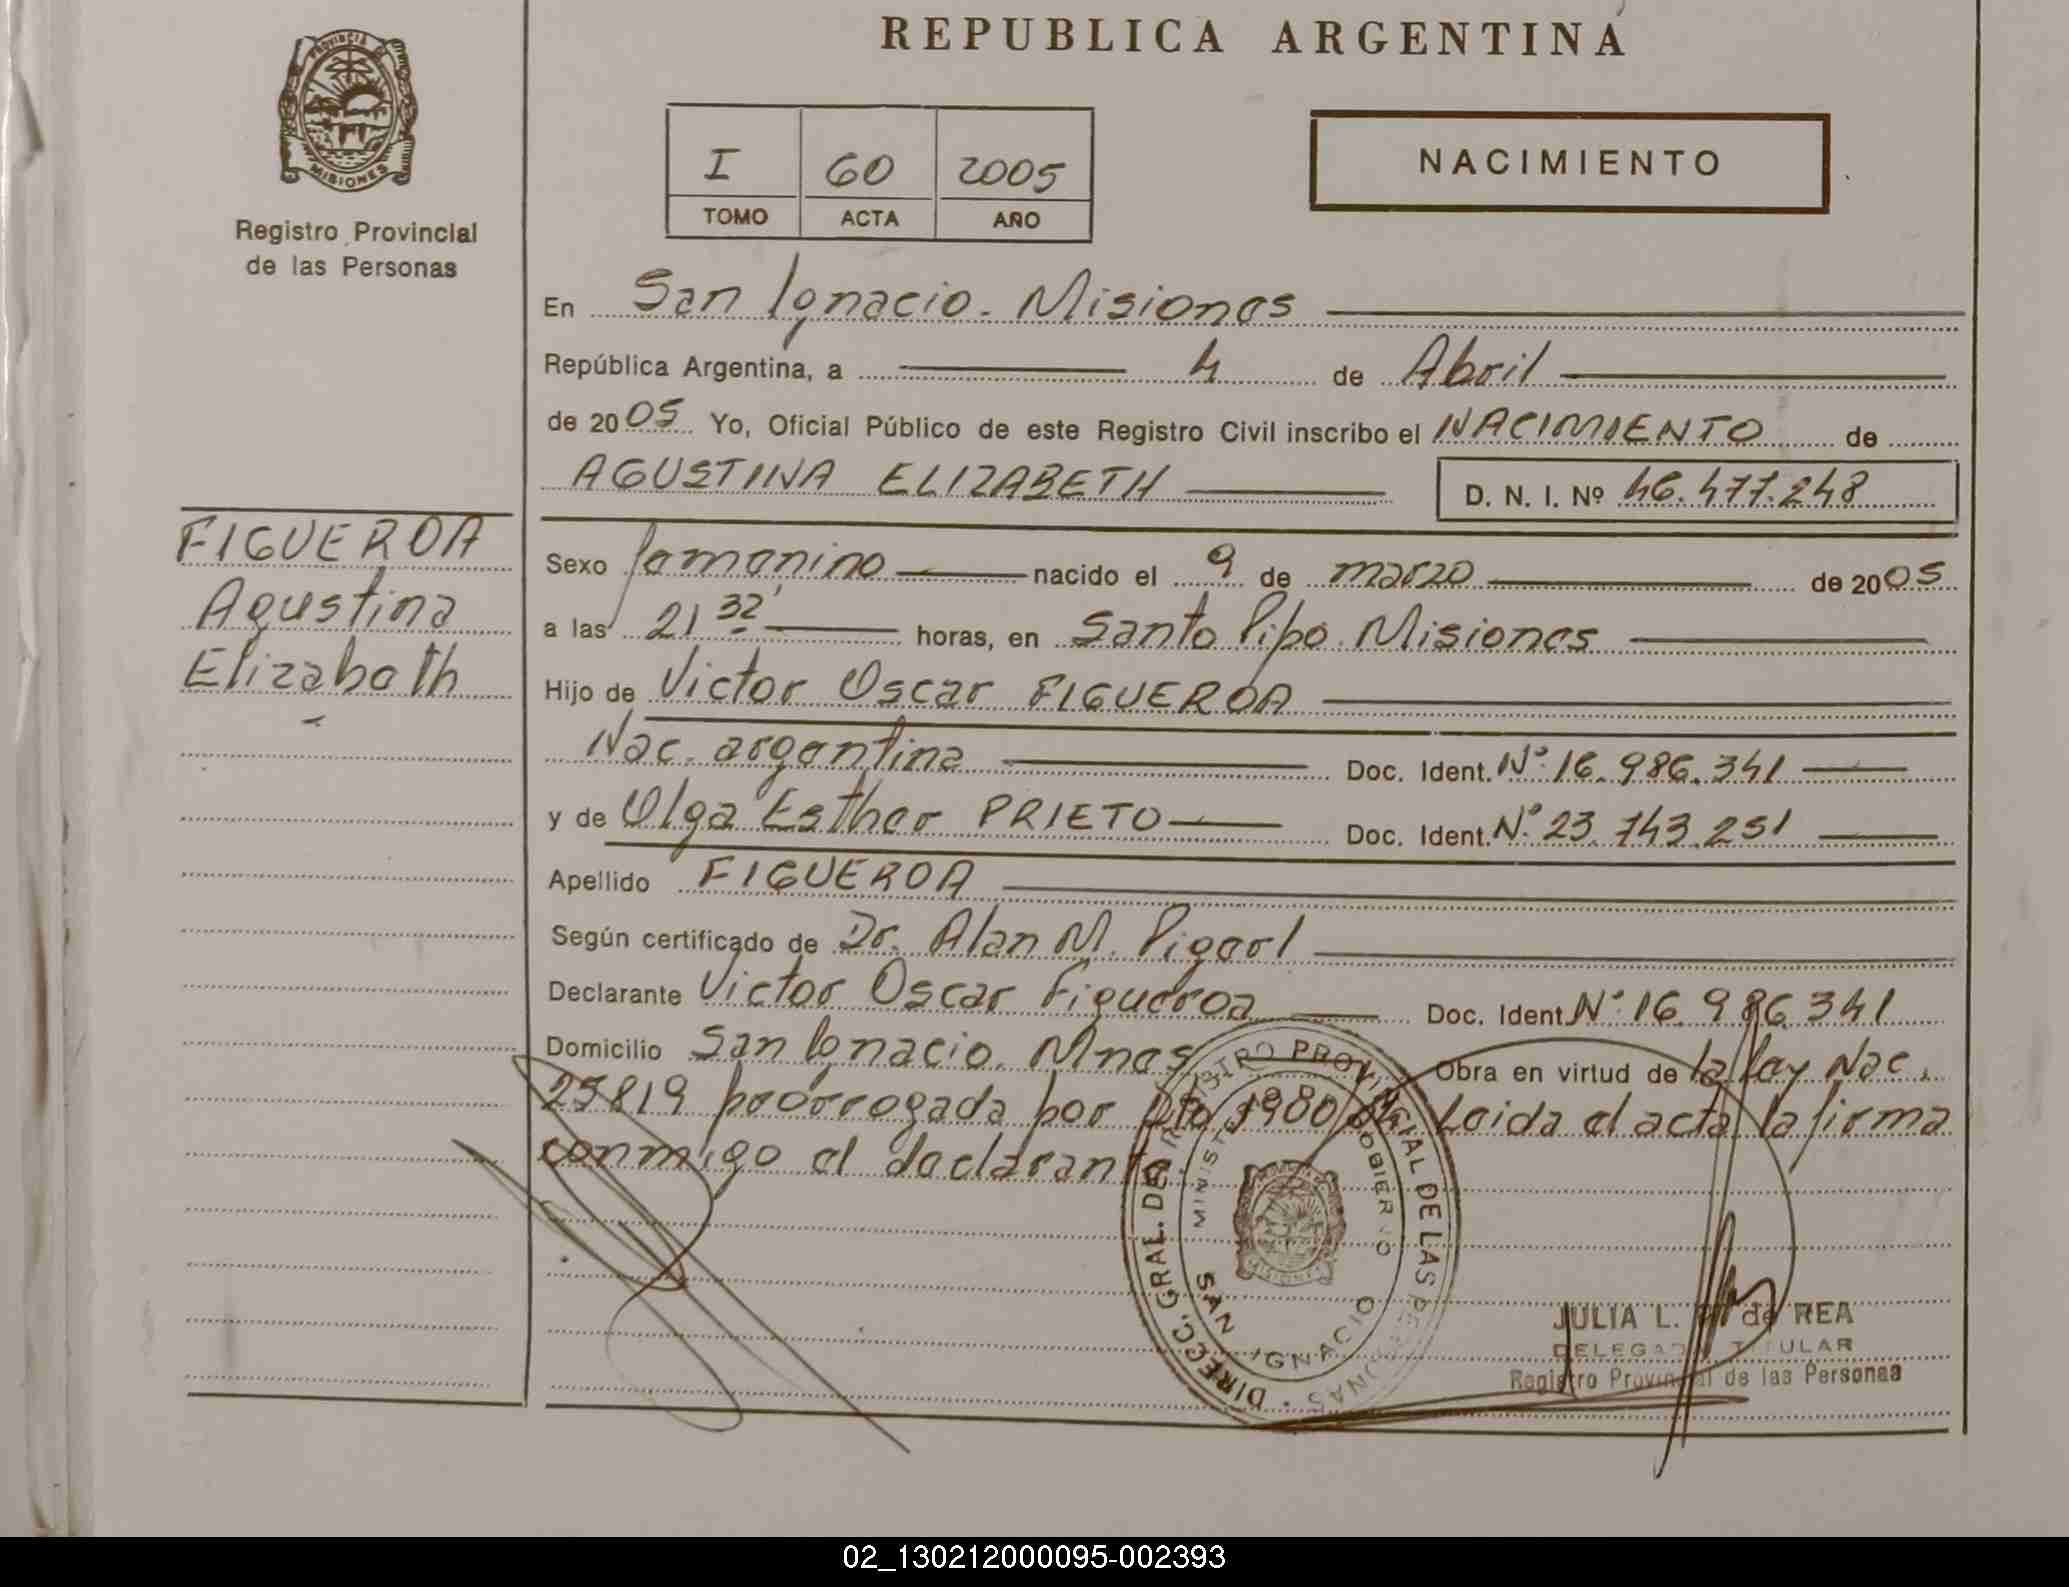 REPUBLICA ARGENTINA
PROVINCIA DE MISIONES
Registro Provincial
de las Personas
I 60 2005
TOMO ACTA AÑO
NACIMIENTO
En San Ignacio. Misiones
República Argentina, a 4 de Abril
de 2005 Yo, Oficial Público de este Registro Civil inscribo el NACIMIENTO de
AGUSTINA ELIZABETH D. N. I. Nº 46.477.248
FIGUEROA
Agustina
Elizabeth
Sexo femenino nacido el 9 de marzo de 2005
a las 21 32' horas, en Santo Pipo. Misiones
Hijo de Victor Oscar FIGUEROA
Nac. argentina Doc. Ident. Nº 16.986.341
y de Olga Esther PRIETO Doc. Ident. Nº 23.743.251
Apellido FIGUEROA
Según certificado de Dr. Alan M.
Declarante Victor Oscar Figueroa Doc. Ident. Nº 16.986.341
Domicilio San Ignacio. Mnes Obra en virtud de la ley Nac.
25819 prorrogada por Leida el acta la firma
conmigo el declarante.
DIRECC. GRAL. DE REGISTRO PROVINCIAL DE LAS PERSONAS
MINISTERIO DE GOBIERNO
SAN IGNACIO
MISIONES
JULIA L. de REA
DELEGADA TITULAR
Registro Provincial de las Personas
02_130212000095-002393